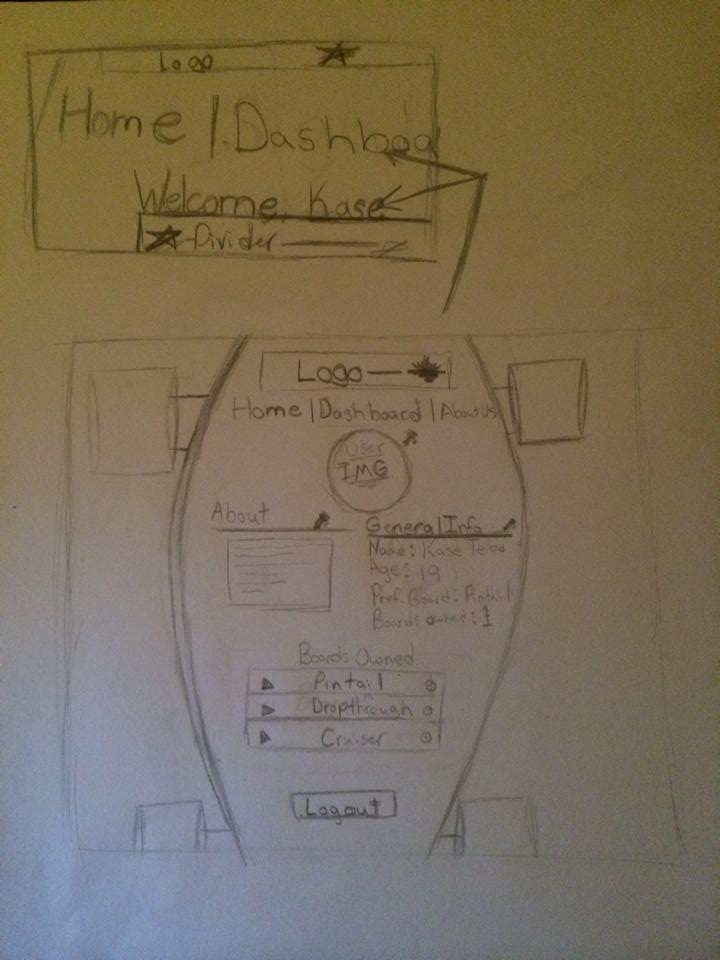 Logo
Home | Dashboa
Welcome, Kase
Divider
Logo
Home | Dashboard | About Us
User
IMG
About
General Info
Name: Kase
Age: 19
Pref. Board: Pintail
Boards owned: 1
Boards Owned
Pintail
Dropthrough
Cruiser
Logout